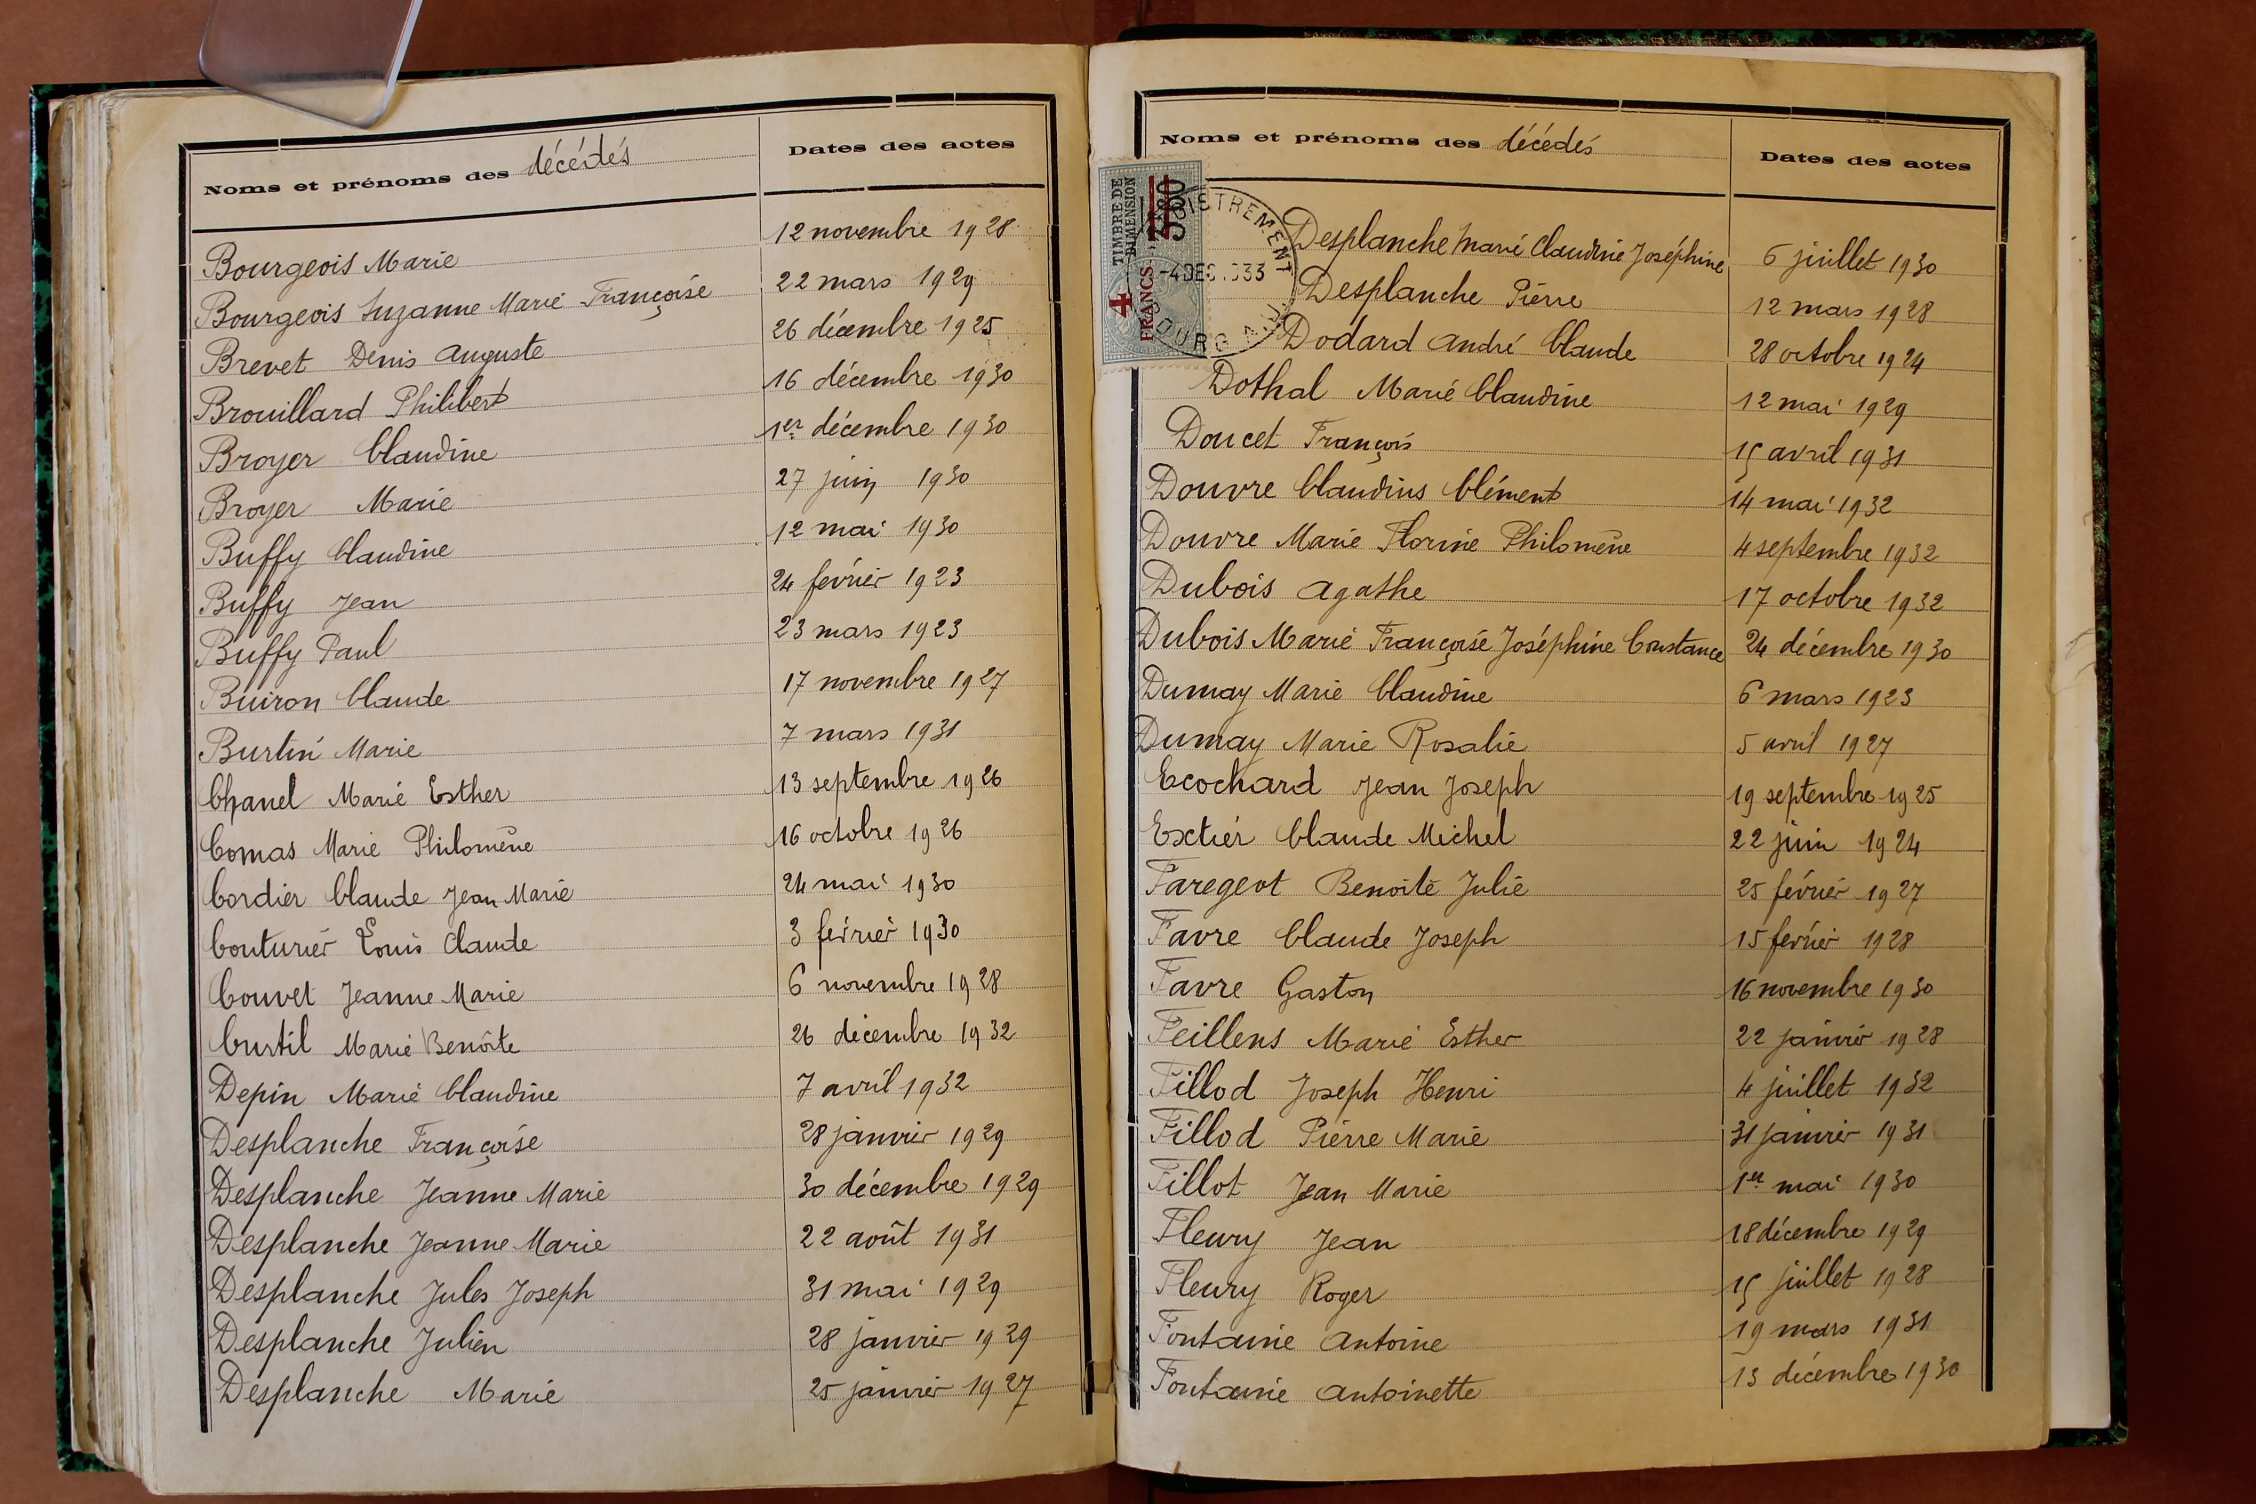 Noms et prénoms des décédés Dates des actes
Bourgeois Marie 12 novembre 1928
Bourgeois Suzanne Marie Françoise 22 mars 1929
Brevet Denis Auguste 26 décembre 1925
Brouillard Philibert 16 décembre 1930
Broyer Claudine 1er décembre 1930
Broyer Marie 27 juin 1930
Buffy Claudine 12 mai 1930
Buffy Jean 24 février 1923
Buffy Paul 23 mars 1923
Buiron Claude 17 novembre 1927
Burtin Marie 7 mars 1931
Chanel Marie Esther 13 septembre 1926
Comas Marie Philomène 16 octobre 1926
Cordier Claude Jean Marie 24 mai 1930
Couturier Louis Claude 3 février 1930
Couvet Jeanne Marie 6 novembre 1928
Curtil Marie Benoîte 26 décembre 1932
Depin Marie Claudine 7 avril 1932
Desplanche Françoise 28 janvier 1929
Desplanche Jeanne Marie 30 décembre 1929
Desplanche Jeanne Marie 22 août 1931
Desplanche Jules Joseph 31 mai 1929
Desplanche Julien 28 janvier 1929
Desplanche Marie 25 janvier 1927
Noms et prénoms des décédés Dates des actes
TIMBRE DE DIMENSION
4 FRANCS
-4 DEC 1933
Desplanche Marie Claudine Joséphine 6 juillet 1930
Desplanche Pierre 12 mars 1928
Dodard André Claude 28 octobre 1924
Dothal Marie Claudine 12 mai 1929
Doucet François 15 avril 1931
Douvre Claudius Clément 14 mai 1932
Douvre Marie Florine Philomène 4 septembre 1932
Dubois Agathe 17 octobre 1932
Dubois Marie Françoise Joséphine Constance 24 décembre 1930
Dumay Marie Claudine 6 mars 1923
Dumay Marie Rosalie 5 avril 1927
Ecochard Jean Joseph 19 septembre 1925
Extier Claude Michel 22 juin 1924
Faregeot Benoîte Julie 25 février 1927
Favre Claude Joseph 15 février 1928
Favre Gaston 16 novembre 1930
Feillens Marie Esther 22 janvier 1928
Fillod Joseph Henri 4 juillet 1932
Fillod Pierre Marie 31 janvier 1931
Fillot Jean Marie 1er mai 1930
Fleury Jean 18 décembre 1929
Fleury Roger 15 juillet 1928
Fontaine Antoine 19 mars 1931
Fontaine Antoinette 13 décembre 1930